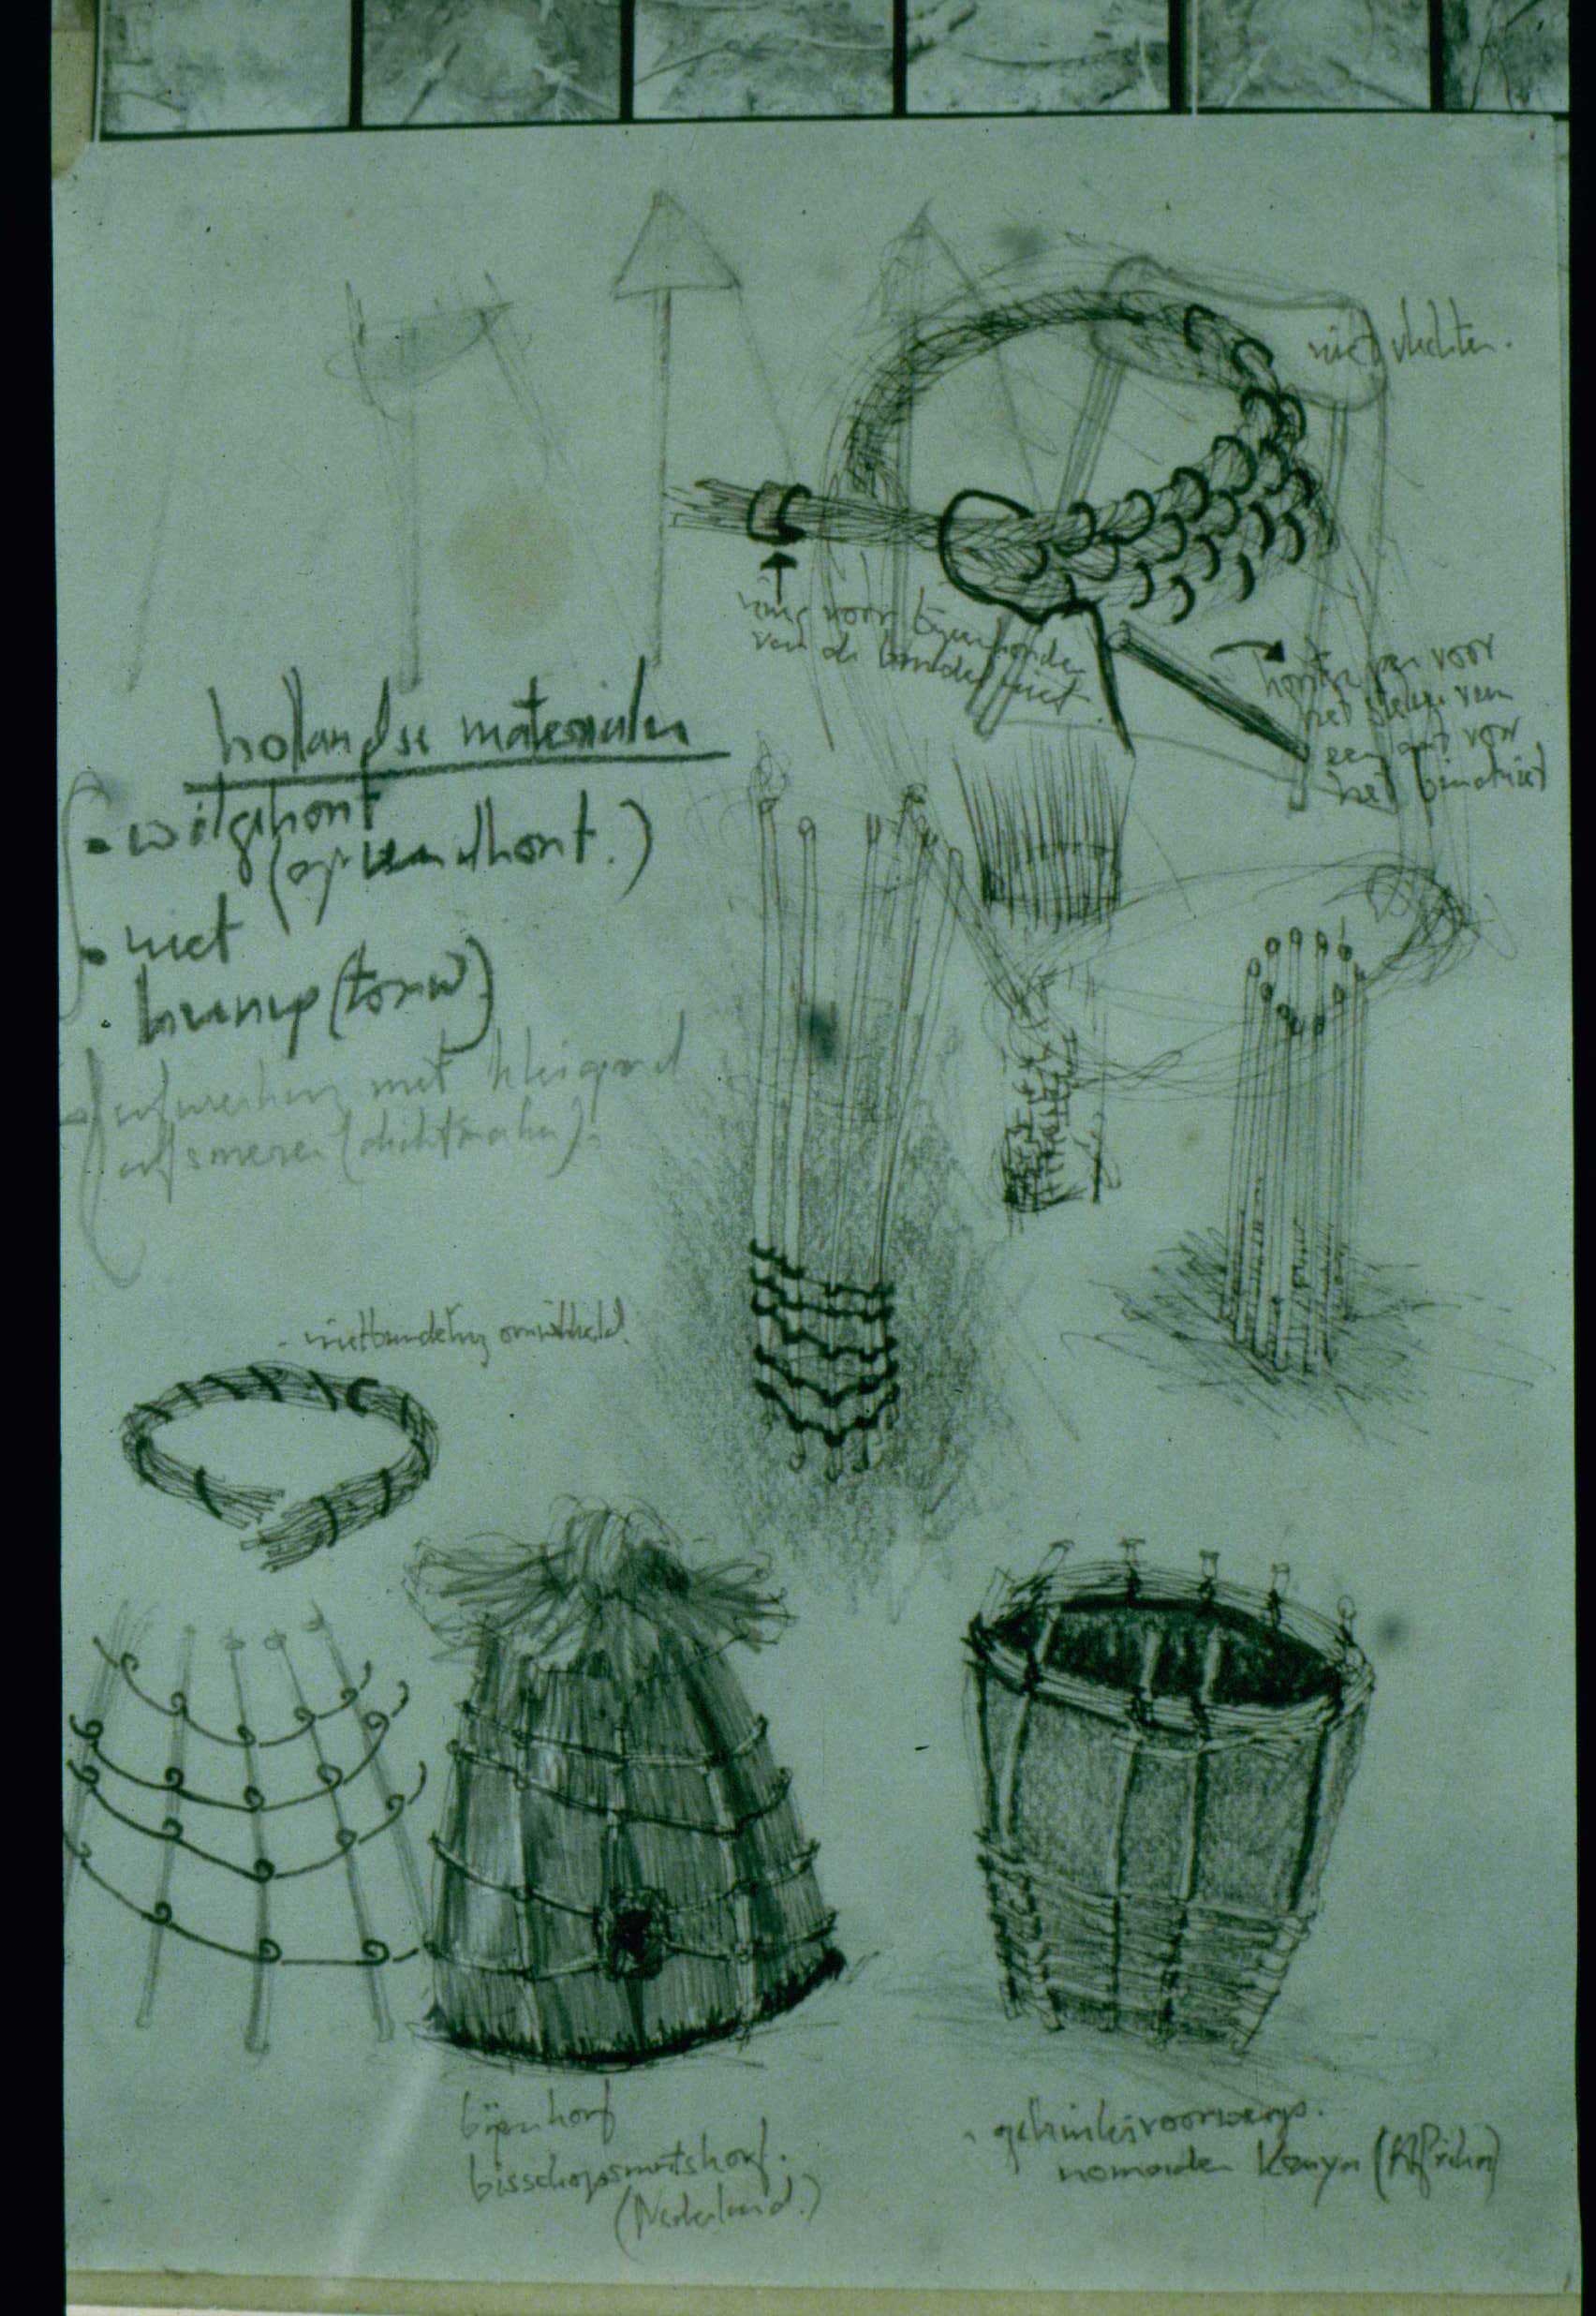 riet vlechten.
ring voor bijeenhouden
van de bundel riet.
houten pen voor
het steken van
een gat voor
het bindriet
hollandse materialen
• wilgehout
(of vandhout.)
• riet
• hennep (touw)
afwerking met klei
afsmeren (dichtmaken).
- rietbundeling omwikkeld.
bijenkorf
bisschopsmutskorf.
(Nederland.)
gebruiksvoorwerp.
nomaden Kenya (Afrika)